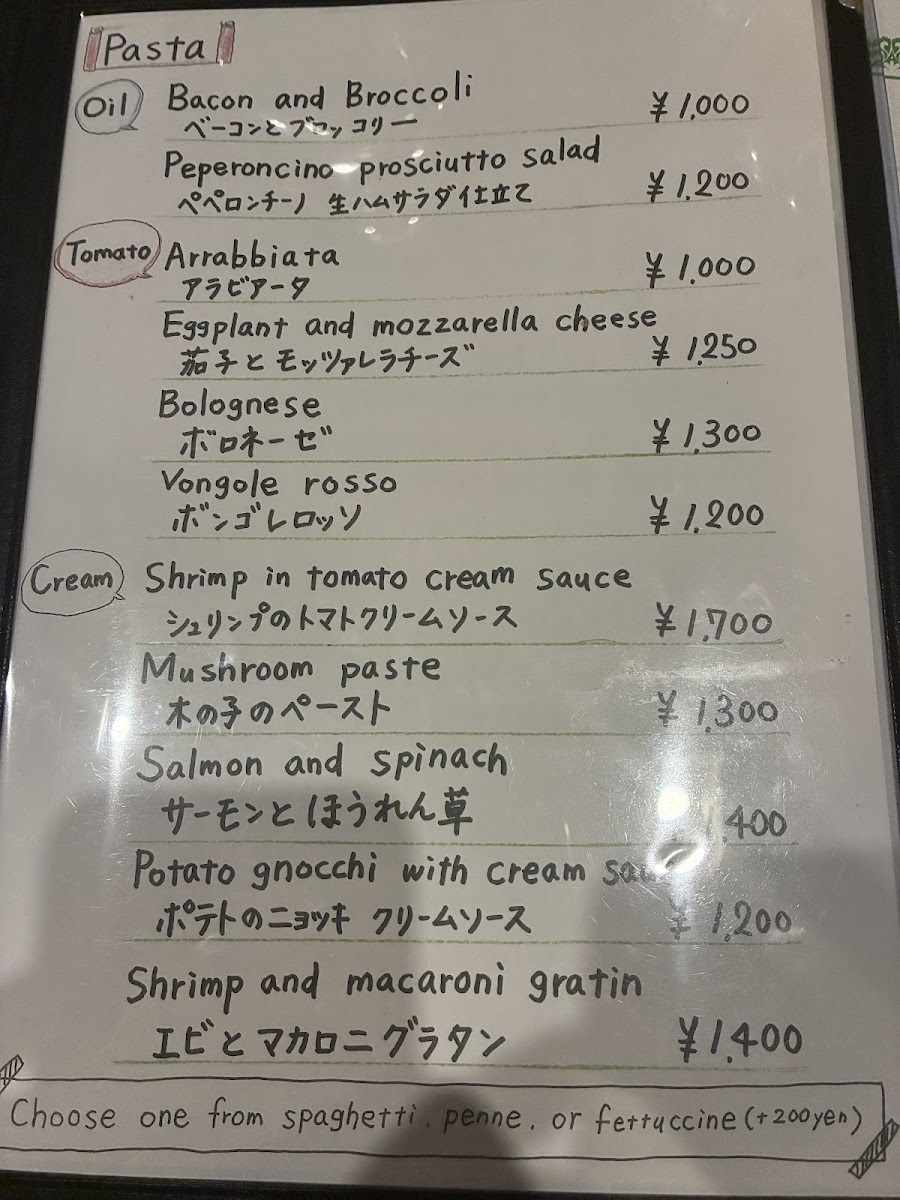 Pasta
Oil
Bacon and Broccoli
ベーコンとブロッコリー
¥1,000
Peperoncino prosciutto salad
ペペロンチーノ 生ハムサラダ仕立て
¥1,200
Tomato
Arrabbiata
アラビアータ
¥1,000
Eggplant and mozzarella cheese
茄子とモッツァレラチーズ
¥1,250
Bolognese
ボロネーゼ
¥1,300
Vongole rosso
ボンゴレロッソ
¥1,200
Cream
Shrimp in tomato cream sauce
シュリンプのトマトクリームソース
¥1,700
Mushroom paste
木の子のペースト
¥1,300
Salmon and spinach
サーモンとほうれん草
400
Potato gnocchi with cream
ポテトのニョッキ クリームソース
¥1,200
Shrimp and macaroni gratin
エビとマカロニグラタン
¥1,400
Choose one from spaghetti, penne, or fettuccine (+200yen)